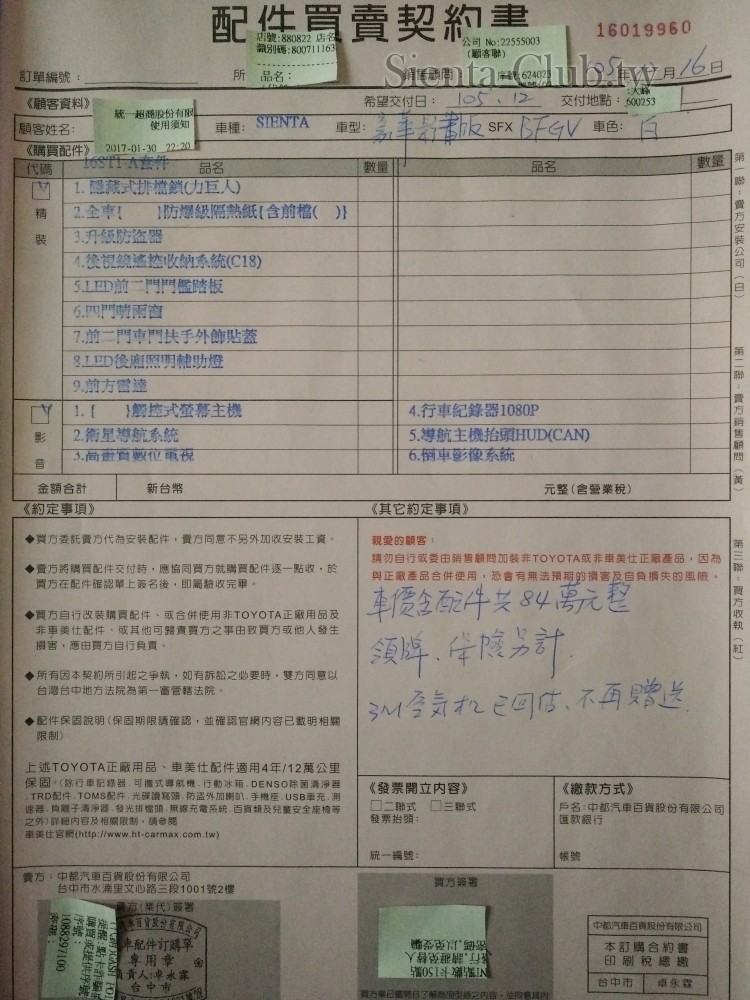 配件買賣契約書
16019960
店號:880822 店名
識別碼:800711163
品名:
公司 No:22555003
(顧客聯)
序號:624023
Sienta-Club.tw
訂單編號:
所
銷售顧問:
105年 月16日
《顧客資料》
希望交付日: 105.12
交付地點:
大峰
600253
統一超商股份有限
使用須知
2017-01-30 22:20
顧客姓名:
車種: SIENTA
車型: 豪華影音版 SFX BFGV 車色: 白
《購買配件》
16ST1-A套件
代碼 品名 數量 品名 數量
V
精裝
1. 隱藏式排檔鎖(力巨人)
2.全車{ }防爆級隔熱紙{含前檔( )}
3.升級防盜器
4.後視鏡遙控收納系統(C18)
5.LED前二門門檻踏板
6.四門晴雨窗
7.前二門車門扶手外飾貼蓋
8.LED後廂照明輔助燈
9.前方雷達
V
影音
1. { }觸控式螢幕主機
2.衛星導航系統
3.高畫質數位電視
4.行車紀錄器1080P
5.導航主機抬頭HUD(CAN)
6.倒車影像系統
金額合計 新台幣 元整(含營業稅)
第一聯:賣方安裝公司(白)
第二聯:賣方銷售顧問(黃)
第三聯:買方收執(紅)
《約定事項》
◆買方委託賣方代為安裝配件,賣方同意不另外加收安裝工資。
◆賣方將購買配件交付時,應協同買方就購買配件逐一點收,於
買方在配件確認單上簽名後,即屬驗收完畢。
◆買方自行改裝購買配件、或合併使用非TOYOTA正廠用品及
非車美仕配件、或其他可歸責買方之事由致買方或他人發生
損害,應由買方自行負責。
◆所有因本契約所引起之爭執,如有訴訟之必要時,雙方同意以
台灣台中地方法院為第一審管轄法院。
◆配件保固說明(保固期限請確認,並確認官網內容已載明相關
限制)
上述TOYOTA正廠用品、車美仕配件適用4年/12萬公里
保固。(除行車記錄器.可攜式導航機.行動冰箱.DENSO除菌清淨器
.TRD配件.TOMS配件.光碟讀寫頭.防盜外加喇叭.手機座.USB車充.測
速器.負離子清淨器.發光排檔頭.無線充電系統.百貨類及兒童安全座椅等
之外)詳細內容及相關限制,請參閱
車美仕官網(http://www.ht-carmax.com.tw)
《其它約定事項》
親愛的顧客:
請勿自行或委由銷售顧問加裝非TOYOTA或非車美仕正廠產品,因為
與正廠產品合併使用,恐會有無法預期的損害及自負損失的風險。
車價含配件共84萬元整
領牌、保險另計.
3M空氣机已回估、不再贈送.
《發票開立內容》
□二聯式 □三聯式
發票抬頭:
統一編號:
《繳款方式》
戶名:中都汽車百貨股份有限公司
匯款銀行
帳號
賣方:中都汽車百貨股份有限公司
台中市水湳里文心路三段1001號2樓
賣方(業代)簽署
車百貨股份有限公司
車配件訂購單
專用章
負責人:卓永霖
台中市
序號:
1088297100
買方簽署
中都汽車百貨股份有限公司
本訂購合約書
印刷稅總繳
台中市 卓永霖